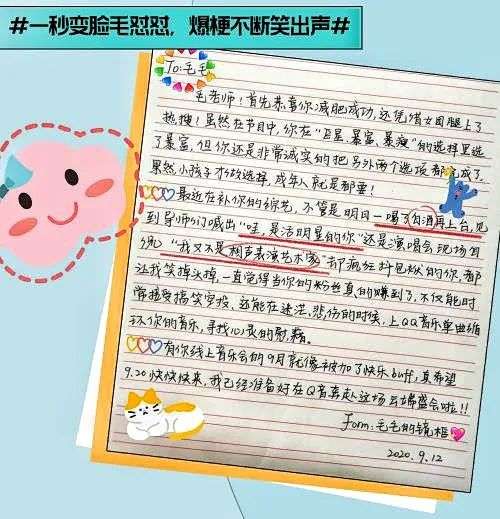 #一秒变脸毛怼怼，爆梗不断笑出声#
To:毛毛
毛老师！首先恭喜你减肥成功，还凭借女团腿上了
热搜！虽然在节目中，你在“巨星、暴富、暴瘦”的选择里选
了暴富，但你还是非常诚实的把另外两个选项都完成了
果然小孩子才做选择，成年人就是都要！
最近在补你的综艺，不管是明日一喝了白酒再上台，见
到导师们喊出“哇，是活明星的你”还是演唱会现场自
侃“我又不是相声表演艺术家”却疯狂抖包袱的你，都
让我笑掉头掉，一直觉得当你的粉丝真的赚到了，不仅能时
常接受搞笑空投，还能在迷茫、悲伤的时候，上QQ音乐单曲循
环你的音乐，寻找心灵的慰藉。
有你线上音乐会的9月就像被加了快乐buff，真希望
9.20快快快来，我已经准备好在Q音奔赴这场云端盛会啦!!
Form:毛毛的镜框
2020.9.12